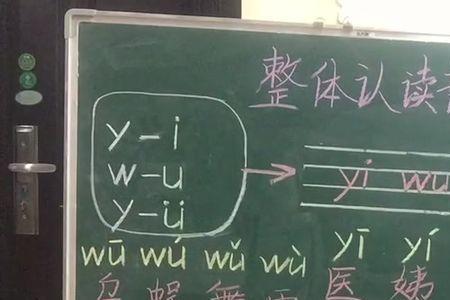 整体认读
y-i
w-u
y-ü
yi wu
wū wú wǔ wù yī yí
医 姨